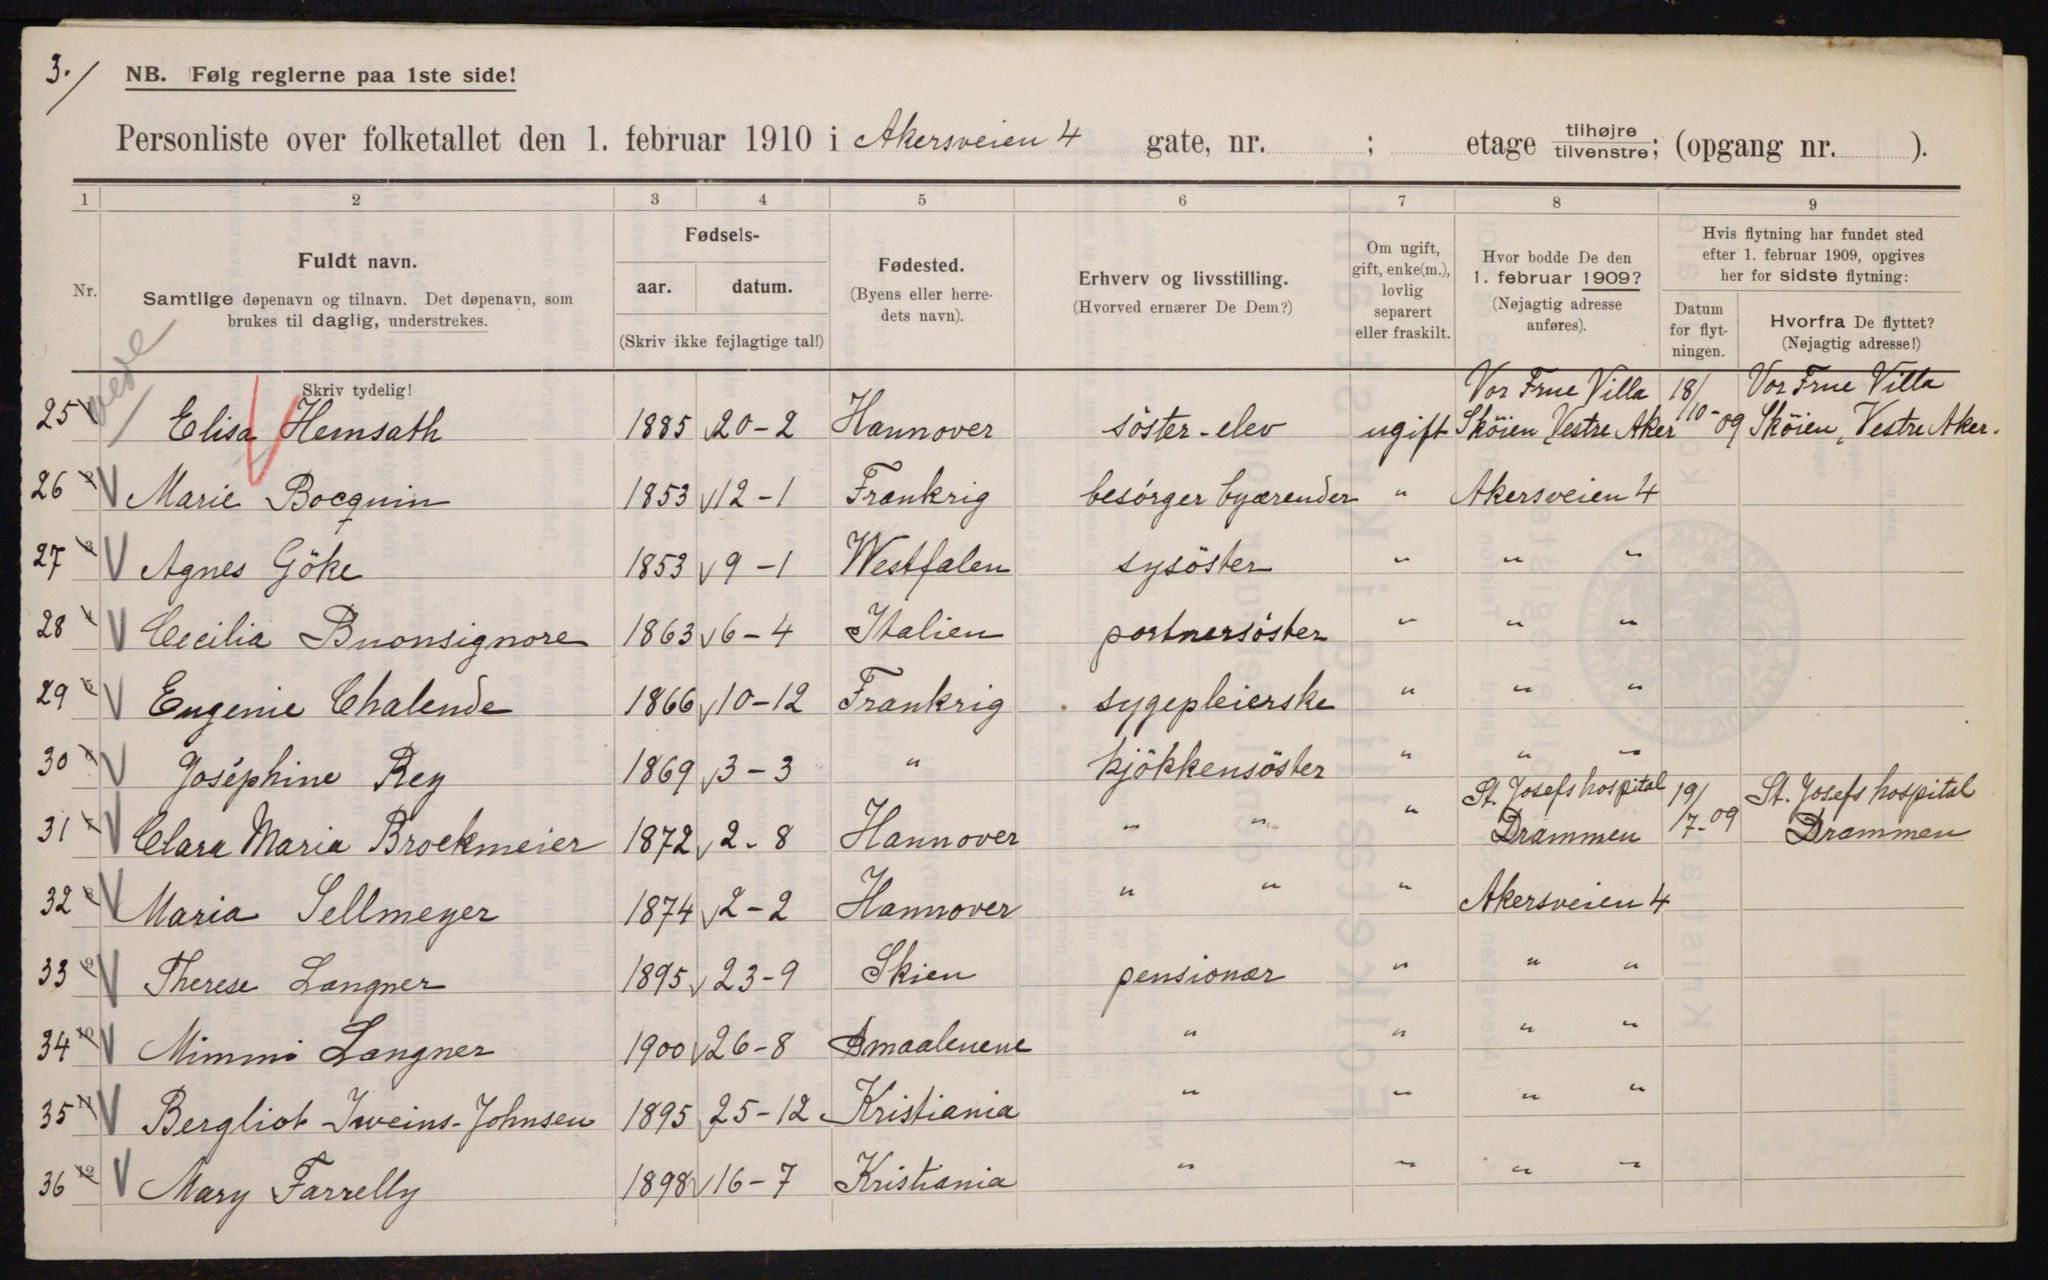 3./
NB. Følg reglerne paa 1ste side!
Personliste over folketallet den 1. februar 1910 i Akersveien 4 gate, nr. ; etage tilhøjre tilvenstre; (opgang nr. ).
1 2 3 4 5 6 7 8 9
Nr.
Fuldt navn.
Samtlige døpenavn og tilnavn. Det døpenavn, som
brukes til daglig, understrekes.
Skriv tydelig!
Fødsels-
aar. datum.
(Skriv ikke fejlagtige tal!)
Fødested.
(Byens eller herre-
dets navn).
Erhverv og livsstilling.
(Hvorved ernærer De Dem?)
Om ugift,
gift, enke(m.),
lovlig
separert
eller fraskilt.
Hvor bodde De den
1. februar 1909?
(Nøjagtig adresse
anføres).
Hvis flytning har fundet sted
efter 1. februar 1909, opgives
her for sidste flytning:
Datum
for flyt-
ningen.
Hvorfra De flyttet?
(Nøjagtig adresse!)
25 Elisa Hemsath 1885 20-2 Hannover söster-elev ugift Vor Frue Villa Sköien, Vestre Aker 18/10-09 Vor Frue Villa Sköien, Vestre Aker.
26 Marie Bocquin 1853 12-1 Frankrig besörger byærender " Akersveien 4
27 Agnes Göke 1853 9-1 Westfalen sysöster " " "
28 Cecilia Buonsignore 1863 6-4 Italien portnersöster " " "
29 Eugenie Chalende 1866 10-12 Frankrig sygepleierske " " "
30 Joséphine Rey 1869 3-3 " kjökkensöster " " "
31 Clara Maria Brockmeier 1872 2-8 Hannover " " " St. Josefs hospital Drammen 19/7-09 St. Josefs hospital Drammen
32 Maria Sellmeyer 1874 2-2 Hannover " " " Akersveien 4
33 Therese Langner 1895 23-9 Skien pensionær " " "
34 Mimmi Langner 1900 26-8 Smaalenene " " " "
35 Bergliot Iweins-Johnsen 1895 25-12 Kristiania " " " "
36 Mary Farrelly 1898 16-7 Kristiania " " " "